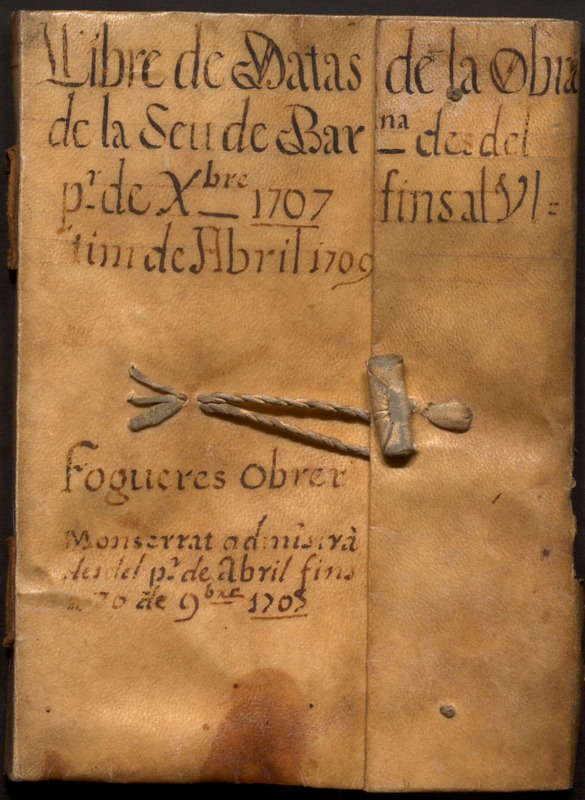 Llibre de Datas de la Obra
de la Seu de Bar na desdel
pr. de Xbre 1707 fins al Vl=
tim de Abril 1709
Fogueres Obrer
Monserrat
desdel pr. de Abril fins
30 de 9bre